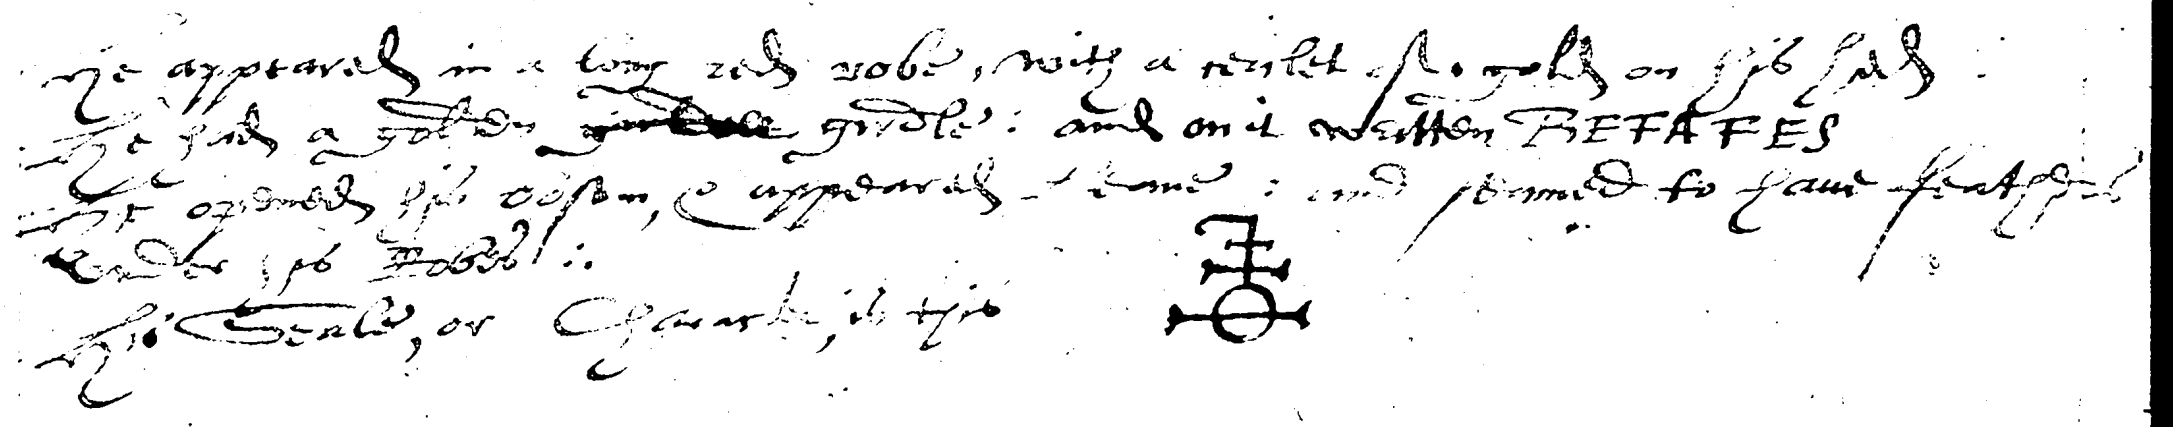 He appeared in a long red robe, with a cerclet of gold on his hed:
He had a golden girdle: and on it written BEFAFES
He opened his bosom, & appeared leane: and semed to haue feathers
Vnder his Robes:.
His Seale, or Character, is this